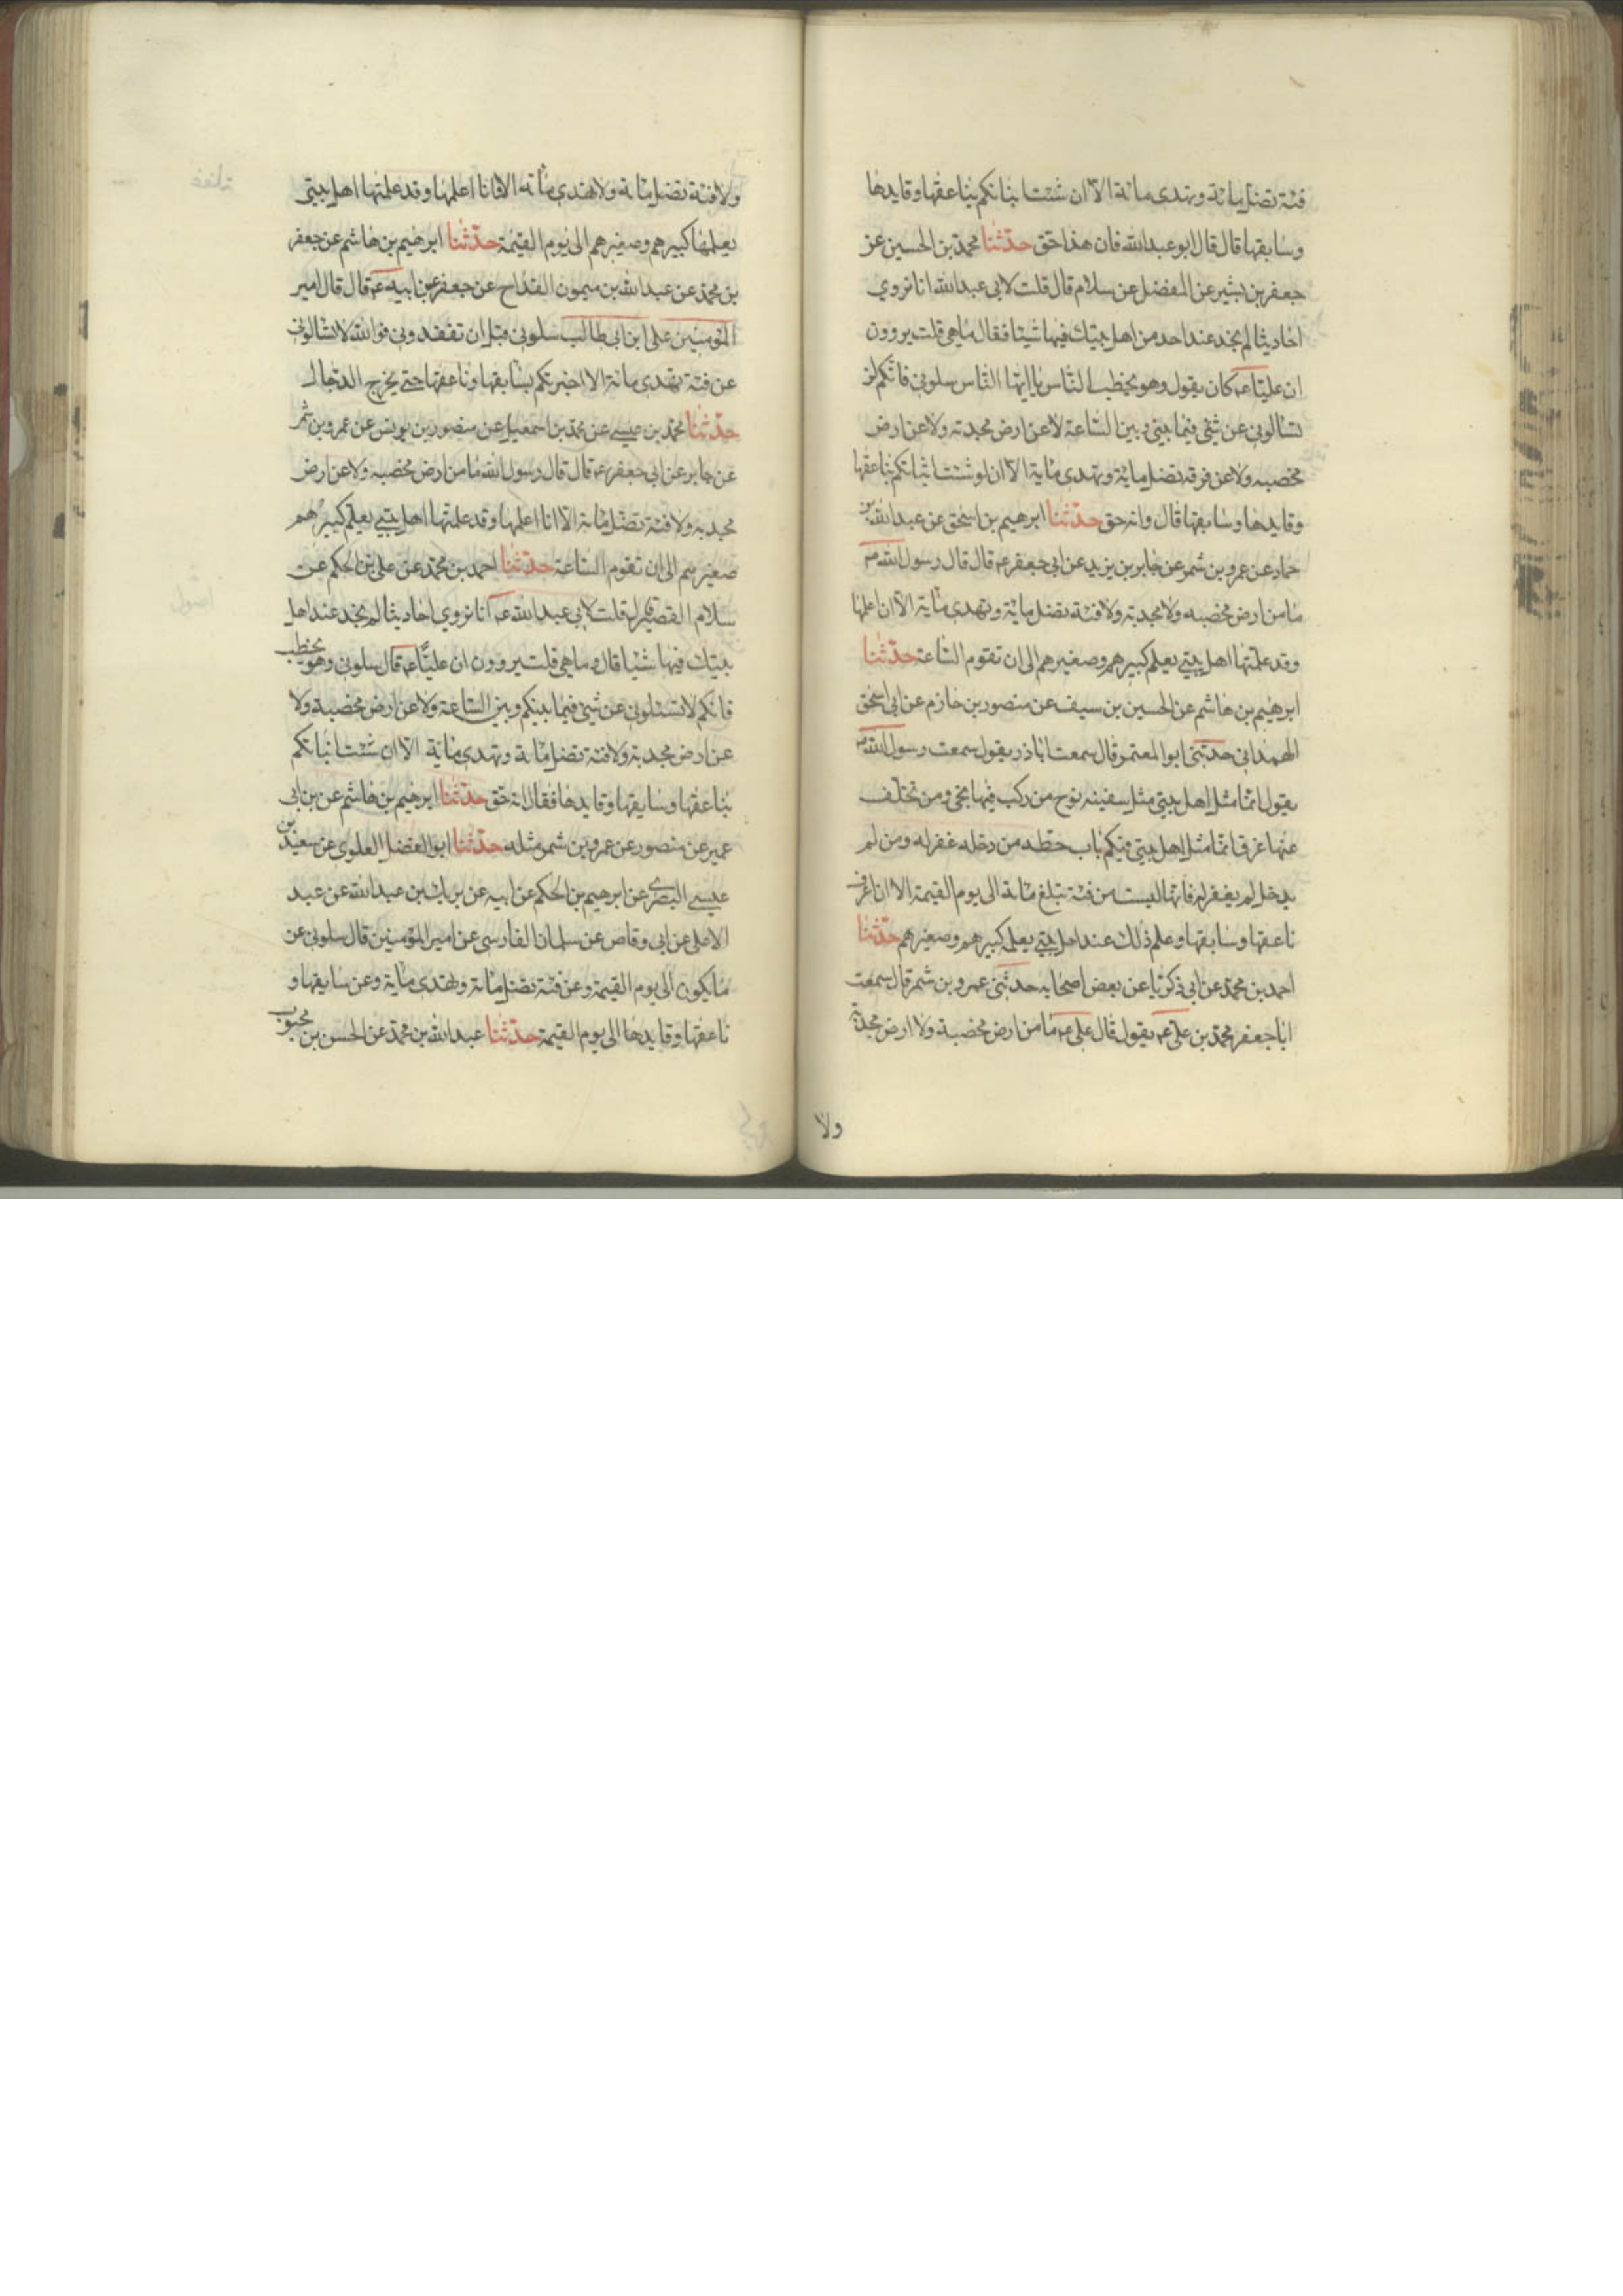 فئة تضل مائة وتهدى مائة الا ان شئت انبانكم بناعقها وقايدها
وسابقها قال قال ابو عبد الله فان هذا حق حدثنا محمد بن الحسين عن
جعفر بن بشير عن المفضل عن سلام قال قلت لابى عبد الله انا نروى
احاديثا لم نجد عند احد من اهل بيتك فيها شيئا فقال ما هى قلت يروون
ان عليا عم كان يقول وهو يخطب الناس يا ايها الناس سلونى فانكم لن
تسالونى عن شئ فيما بينى وبين الساعة لا عن ارض مجدبة ولا عن ارض
مخصبه ولا عن فرقه تضل مائة وتهدى مائة الا ان لو شئت انبانكم بناعقها
وقايدها وسابقها قال وانه حق حدثنا ابرهيم بن اسحق عن عبد الله بن
حماد عن عمرو بن شمر عن جابر بن يزيد عن ابى جعفر عم قال قال رسول الله ص
ما من ارض مخصبه ولا مجدبة ولا فئة تضل مائة وتهدى مائة الا انا علمها
وقد علمتها اهل بيتى يعلم كبيرهم وصغيرهم الى ان تقوم الساعة حدثنا
ابرهيم بن هاشم عن الحسين بن سيف عن منصور بن حازم عن ابى اسحق
الهمدانى حدثنى ابو المعتمر قال سمعت اباذر يقول سمعت رسول الله ص
يقول انما مثل اهل بيتى مثل سفينه نوح من ركب فيها نجى ومن تخلف
عنها غرق انما مثل اهل بيتى فيكم باب حطه من دخله غفر له ومن لم
يدخل لم يغفر له فانها ليست من فئة تبلغ مائة الى يوم القيمة الا انا اعرف
ناعقها وسابقها وعلم ذلك عند اهل بيتى يعلمه كبيرهم وصغيرهم حدثنا
احمد بن محمد عن ابى زكريا عن بعض اصحابه حدثنى عمرو بن شمر قال سمعت
ابا جعفر محمد بن على عم يقول قال على عم ما من ارض مخصبة ولا ارض مجدبة
ولا
ولا فئة تضل مائة ولا تهدى مائة الا انا اعلمها وقد علمتها اهل بيتى
يعلمها كبيرهم وصغيرهم الى يوم القيمة حدثنا ابرهيم بن هاشم عن جعفر
بن محمد عن عبد الله بن ميمون القداح عن جعفر عن ابيه عم قال قال امير
المؤمنين على ابن ابى طالب سلونى قبل ان تفقدونى فوالله لا تسالونى
عن فئة تهدى مائة الا اخبرتكم بسابقها وناعقها حتى يخرج الدجال
حدثنا محمد بن عيسى عن محمد بن اسمعيل عن منصور بن يونس عن عمرو بن شمر
عن جابر عن ابى جعفر عم قال قال رسول الله ما من ارض مخصبه ولا عن ارض
مجدبه ولا فئة تضل مائة الا انا اعلمها وقد علمتها اهل بيتى يعلم كبيرهم
صغيرهم الى ان تقوم الساعة حدثنا احمد بن محمد عن على بن الحكم عن
سلام القصير قلت لابى عبد الله عم انا نروى احاديثا لم نجد عند اهل
بيتك فيها شيئا قال وما هى قلت يروون ان عليا عم قال سلونى وهو يخطب
فانكم لا تسئلونى عن شئ فيما بينكم وبين الساعة ولا عن ارض مخصبة ولا
عن ارض مجدبة ولا فئة تضل مائة وتهدى مائة الا ان شئت انباتكم
بناعقها وسايقها وقايدها فقال انه حق حدثنا ابرهيم بن هاشم عن بن ابى
عمير عن منصور عن عمرو بن شمر مثله حدثنا ابو الفضل العلوى عن سعيد بن
عيسى البصرى عن ابرهيم بن الحكم عن ابيه عن شريك بن عبد الله عن عبد
الاعلى عن ابى وقاص عن سلمان الفارسى عن امير المؤمنين قال سلونى عن
ما يكون الى يوم القيمة وعن فئة تضل مائة وتهدى مائة وعن سايقها و
ناعقها وقايدها الى يوم القيمة حدثنا عبد الله بن محمد عن الحسن بن محبوب